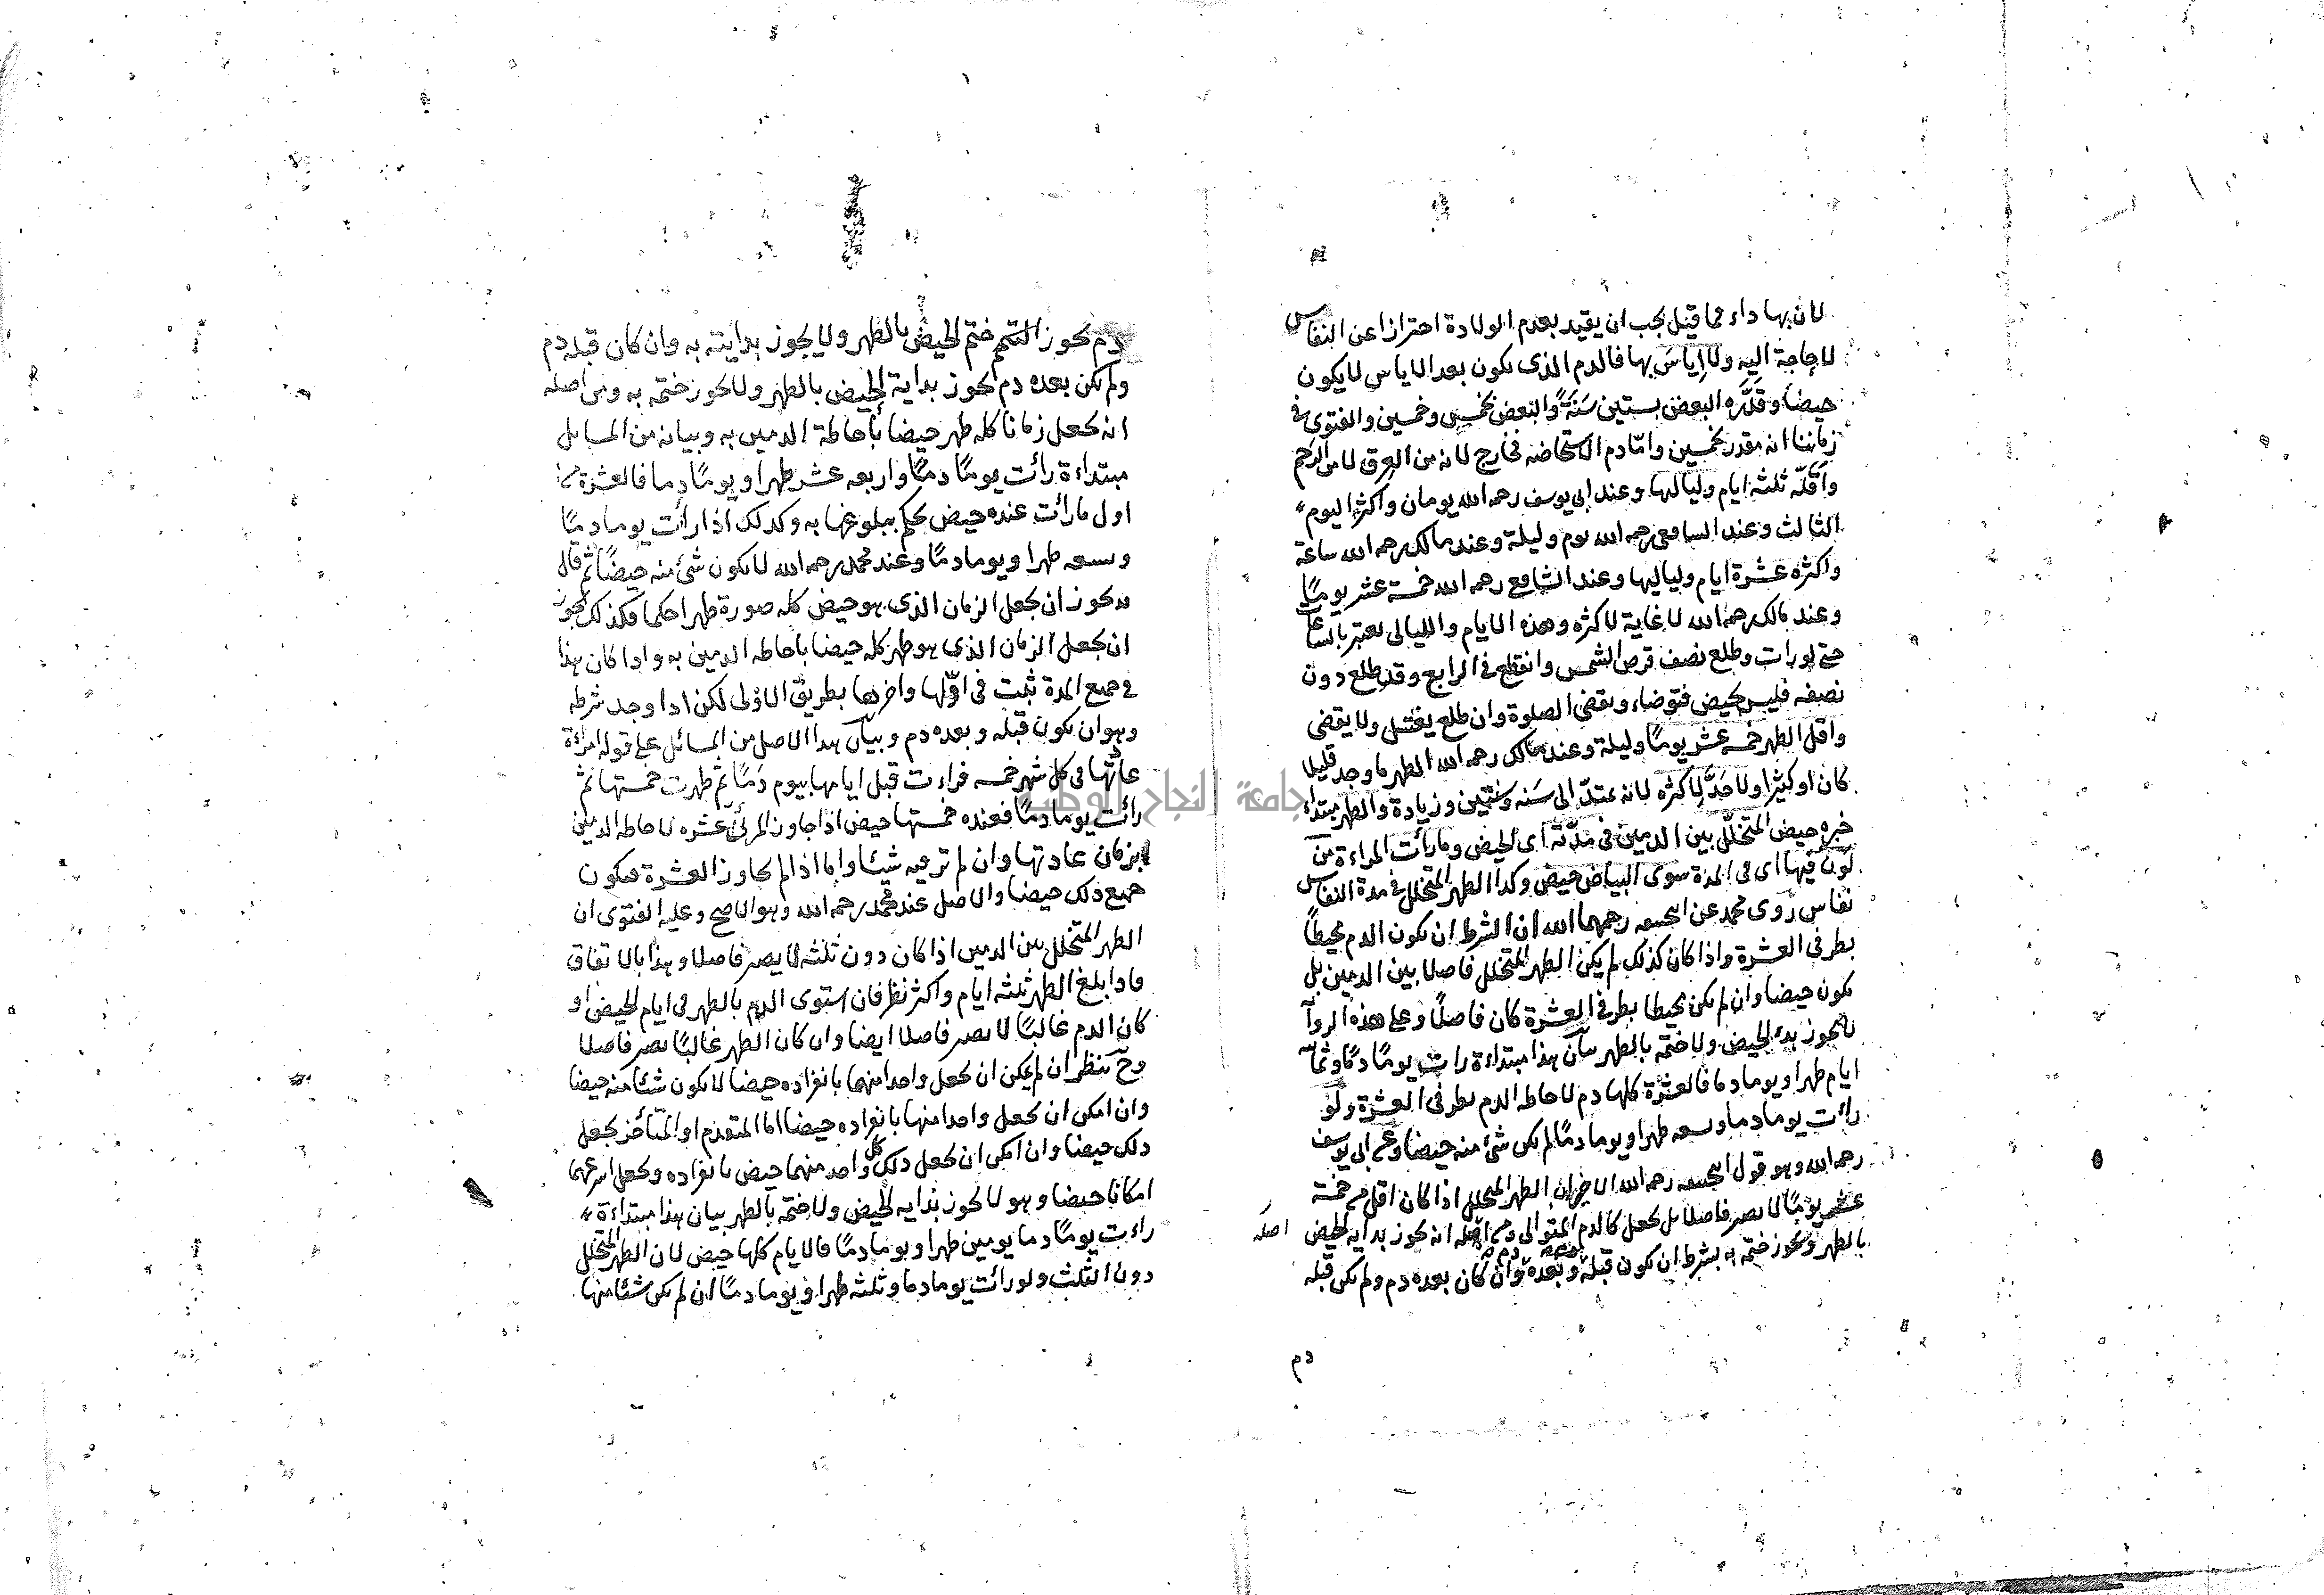 لان بها داء فما قيل يجب ان يقيد بعدم الولادة احترازا عن النفاس
لا حاجة اليه ولا إياسَ بها فالدم الذى يكون بعد الاياس لا يكون
حيضا وقدَّره البعض بستين سَنَةً والبعض بخمس وخمسين والفتوى فى
زماننا انه مقدر بخمسين وامّا دم الاستحاضه فخارج لانه من العرق لا من الرحم
واَقَلّه ثلثة ايام ولياليها وعند ابى يوسف رحمه الله يومان واكثر اليوم
الثالث وعند الشافعى رحمه الله يوم وليلة وعند مالك رحمه الله ساعة
واكثره عشرة ايام ولياليها وعند الشافع رحمه الله خمسة عشر يومًا
وعند مالك رحمه الله لا غاية لاكثره وهذه الايام والليالى تعتبر بالساعات
حتى لو رات وطلع نصف قرص الشمس وانقطع فى الرابع وقد طلع دون
نصفه فليس بحيض فتوضاء وتقضى الصلوة وان طلع يغتسل ولا يقضى
واقل الطهر خمسه عشر يومًا وليلة وعند مالك رحمه الله الطهر ما وجد قليلا
كان او كثيرا ولا حَدَّ لِاكثره لانه يمتدّ الى سَنَه وسنتين وزيادة والطهر مبتداء
خبره حيض المتخلّل بين الدمين فى مدّته اى الحيض وما رأت المراءة من
لون فيها اى فى المدة سوى البياض حيض وكذا الطهر المتخلل فى مدة النفاس
نفاس روى محمد عن ابيحنيفه رحمهما الله ان الشرط ان يكون الدم محيطاً
بطرفى العشرة واذا كان كذلك لم يكن الطهر المتخلل فاصلا بين الدمين بل
يكون حيضا وان لم يكن محيطا بطرفى العشرة كان فاصلًا وعلى هذه الروآ
لا يجوز بدئ الحيض ولا ختمه بالطهر بيان هذا مبتداءة رات يومًا دمًا وثمانية
ايام طهرا ويوما دما فالعشرة كلها دم لاحاطه الدم بطرفى العشرة ولو
رات يوما دما وتسعه طهرا ويوما دمًا لم يكن شئ منه حيضا وعن ابى يوسف
رحمه الله وهو قول ابيحنيفه رحمه الله الاخر ان الطهر المتخلل اذا كان اقل من خمسة
عشر يومًا لا يصير فاصلا بل يجعل كالدم المتوالى ومن اصله انه يجوز بدايه الحيض
اصله
بالطهر ويجوز ختمه به بشرط ان يكون قبله وبعده دم وان كان بعده دم ولم يكن قبله
دم
دم يجوز ختم الحيض بالطهر ولا يجوز بدايته به وان كان قبله دم
ولم يكن بعده دم يجوز بداية الحيض بالطهر ولا يجوز ختمه به ومن اصله
انه يجعل زمانا كله طهر حيضا بأحاطة الدمين به وبيانه من المسايل
مبتداءة رائت يومًا دمًا واربعه عشر طهرا ويومًا دما فالعشرة من
اول ما رائت عنده حيض يحكم ببلوغها به وكدلك اذا رأت يوما دمًا
وتسعه طهرا ويوما دمًا وعند محمد رحمه الله لا يكون شئ منه حيضًا ثم قال
قد يجوز ان يجعل الزمان الذى هو حيض كله صورة طهرا حكما فكذلك يجوز
ان يجعل الزمان الذى هو طهر كله حيضا باحاطه الدمين به واذا كان هذا
فى جميع المدة ثبت فى اوّلها واخرها بطريق الاولى لكن اذا وجد شرطه
وهو ان يكون قبله وبعده دم وبيان هذا الاصل من المسائل على قوله امراءة
عادتها فى كل شهر خمسه فراءت قبل ايامها بيوم دَمًا ثم طهرت خمستها ثم
رائت يوما دمًا فعنده خمستها حيض اذا جاوز المرئى عشره لاحاطه الدمين
بزمان عادتها وان لم تر فيه شيئا واما اذا لم يجاوز العشرة فيكون
جميع ذلك حيضا والاصل عند محمد رحمه الله وهو الاصح وعليه الفتوى ان
الطهر المتخلل بين الدمين اذا كان دون ثلثه لا يصير فاصلا وهذا بالاتفاق
فاذا بلغ الطهر ثلثه ايام واكثر نظر فان استوى الدم بالطهر فى ايام الحيض او
كان الدم غالبًا لا يصير فاصلا ايضا وان كان الطهر غالبًا يصير فاصلا
وحّ ينظر ان لم يمكن ان يجعل واحد منهما بانفراده حيضا لا يكون شئا منه حيضا
وان امكن ان يجعل واحدا منها بانفراده حيضا اما المتقدم او المتأخر يجعل
ذلك حيضا وان امكن ان يجعل ذلك كل واحد منهما حيض بانفراده يجعل اسرعهما
امكانا حيضا وهو لا يجوز بدايه الحيض ولا ختمه بالطهر بيان هذا مبتداءة
راءت يومًا دما يومين طهرا ويوما دمًا فالايام كلها حيض لان الطهر المتخلل
دون الثلث ولو رائت يوما دما وثلثه طهرا ويوما دمًا ان لم يكن شئا منها
جامعة النجاح الوطنية